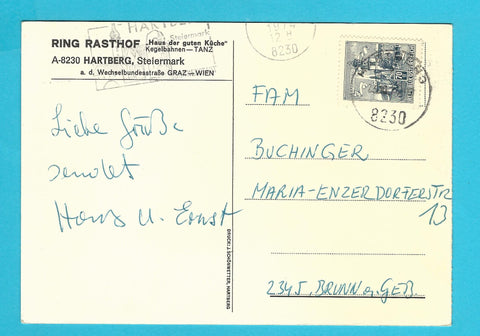 RING RASTHOF „Haus der guten Küche"
Kegelbahnen—TANZ
A-8230 HARTBERG, Steiermark
a. d. Wechselbundesstraße GRAZ—WIEN
HARTBERG
Steiermark
8230
8230
Liebe Grüße
sendet
Hans u. Ernst
FAM
BUCHINGER
MARIA-ENZERDORFERSTR
13
2345 BRUNN a. GEB.
DRUCK: J. SCHÖNWETTER, HARTBERG